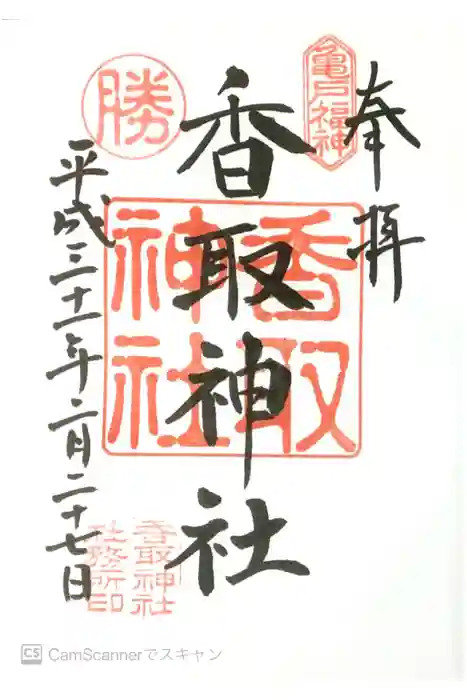 奉拝
亀戸福神
香取神社
香取神社
勝
平成三十一年二月二十七日
香取神社
社務所印
CS CamScannerでスキャン